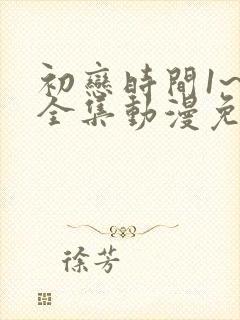 初戀時間1~
全集動漫免
徐芳